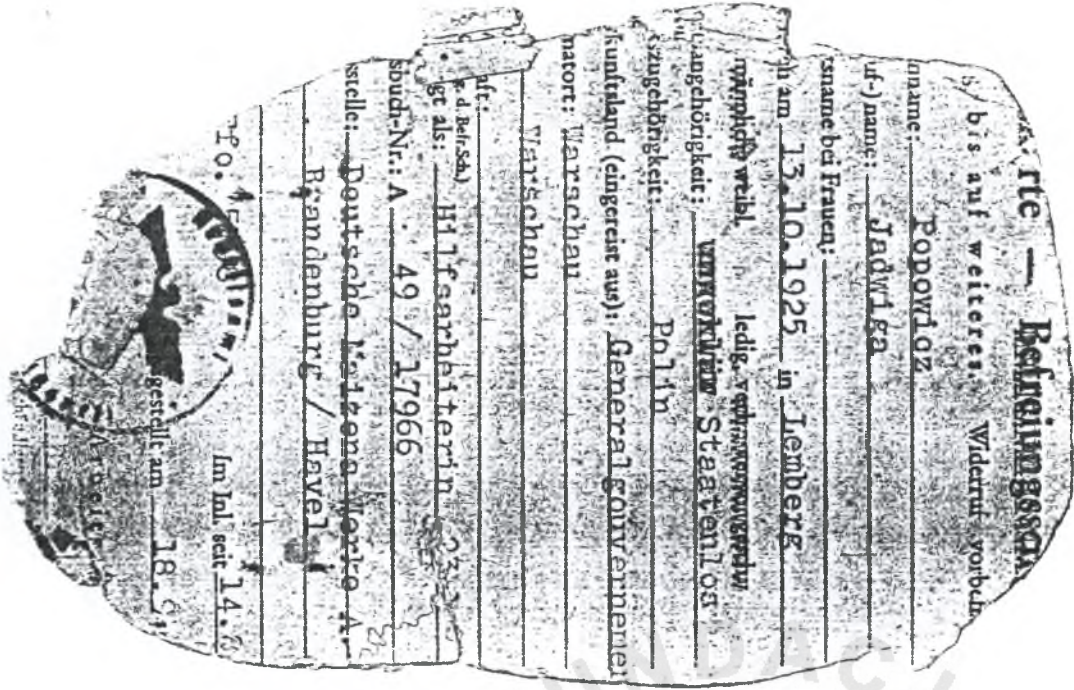 rte — Befreiungssch
bis auf weiteres. Widerruf vorbeh
nname: Popowicz
uf-)name: Jadwiga
sname bei Frauen:
h am 13.10.1925 in Lemberg
männlich, weibl. ledig,
angehörigkeit: Staatenlos
szugehörigkeit: Polin
kunftsland (eingereist aus): Generalgouvernemen
matort: Warschau
Warschau
aft:
g. d. Befr.Sch.)
gt als: Hilfsarbeiterin
sbuch-Nr.: A . 49/17966
sstelle: Deutsche Werke A.
Brandenburg/Havel
Im Inl. seit 14.
gestellt am 18.